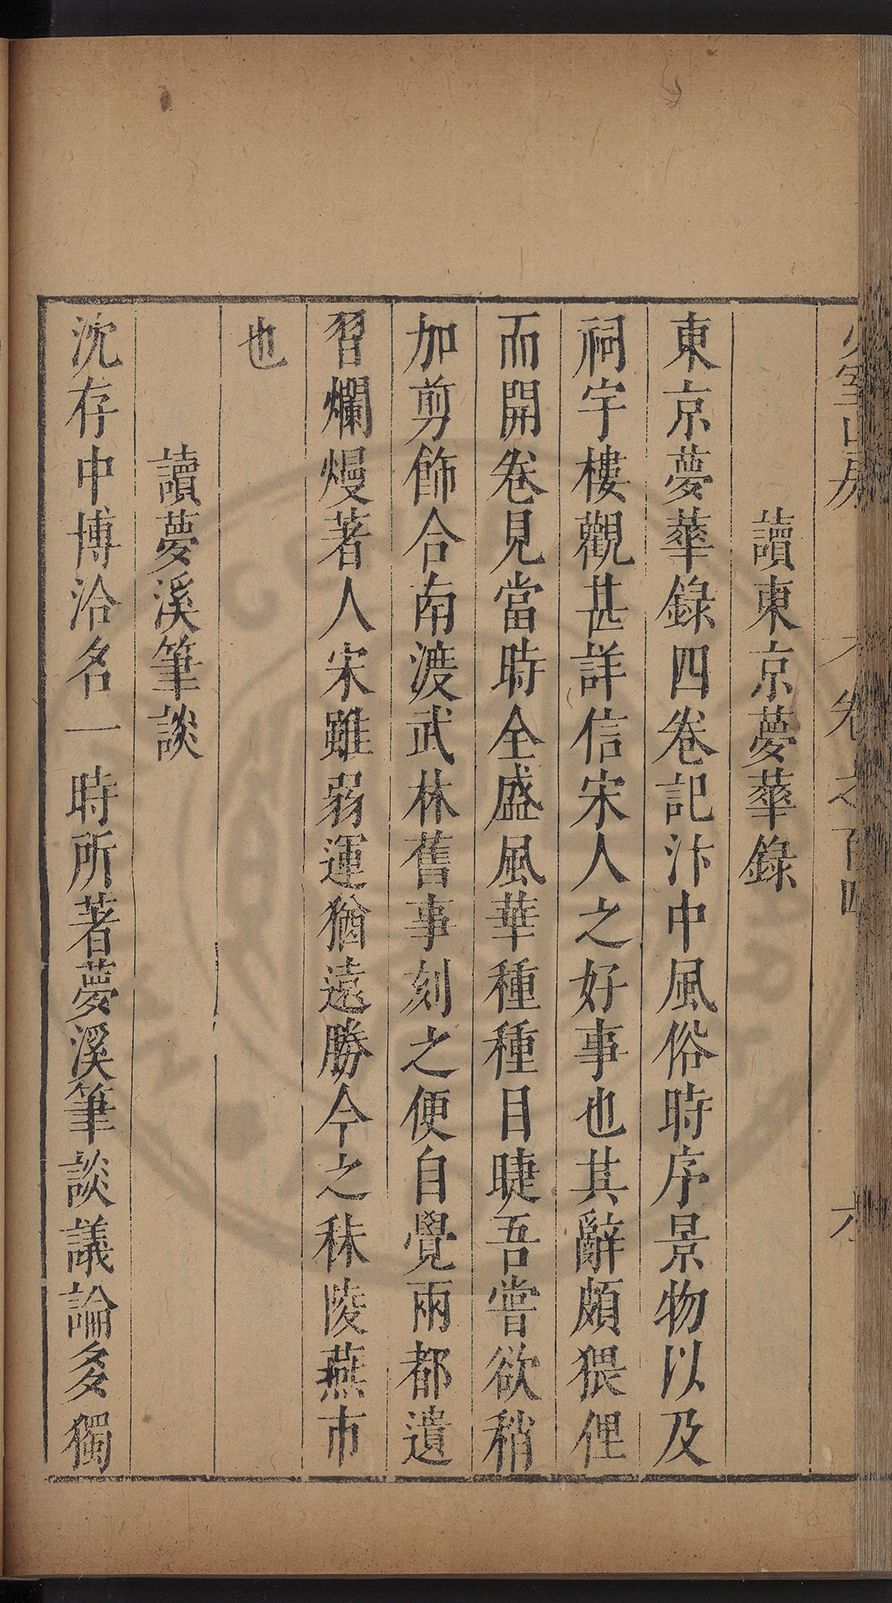 少室山房
卷之百四
六
讀東京夢華錄
東京夢華錄四卷記汴中風俗時序景物以及
祠宇樓觀甚詳信宋人之好事也其辭頗猥俚
而開卷見當時全盛風華種種目睫吾嘗欲稍
加剪飾合南渡武林舊事刻之便自覺兩都遺
習爛熳著人宋雖弱運猶遠勝今之秣陵燕市
也
讀夢溪筆談
沈存中博洽名一時所著夢溪筆談議論多獨